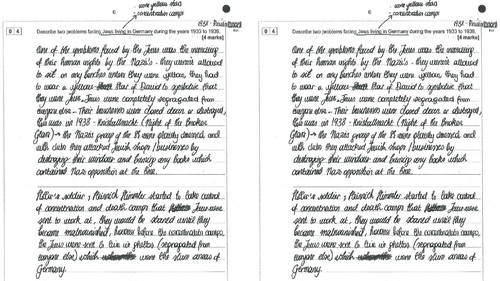 wore yellow stars
concentration camps
6
1938 -
0 4 Describe two problems facing Jews living in Germany during the years 1933 to 1939.
[4 marks]
One of the problems faced by the Jews was the removing
of their human rights by the Nazi's - they weren't allowed
to sit on any benches unless they were yellow, they had
to wear a yellow Star of David to symbolise that
they were Jews. Jews were completely segregated from
everyone else - Their businesses were closed down or destroyed,
this was in 1938 - Kristallnacht (Night of the Broken
Glass) → the Nazi group of the SS were plainly covered, and
with clubs they attacked Jewish shops / businesses by
destroying their windows and burning any books which
contained Nazi opposition at the time.
Hitler's soldier, Heinrich Himmler started to take control
of concentration and death camps that Jews were
sent to work at, they would be starved until they
became malnourished, however before the concentration camps,
the Jews were sent to live in ghettos (segregated from
everyone else) which were the slum areas of
Germany.
wore yellow stars
concentration camps
6
1938 -
0 4 Describe two problems facing Jews living in Germany during the years 1933 to 1939.
[4 marks]
One of the problems faced by the Jews was the removing
of their human rights by the Nazi's - they weren't allowed
to sit on any benches unless they were yellow, they had
to wear a yellow Star of David to symbolise that
they were Jews. Jews were completely segregated from
everyone else - Their businesses were closed down or destroyed,
this was in 1938 - Kristallnacht (Night of the Broken
Glass) → the Nazi group of the SS were plainly covered, and
with clubs they attacked Jewish shops / businesses by
destroying their windows and burning any books which
contained Nazi opposition at the time.
Hitler's soldier, Heinrich Himmler started to take control
of concentration and death camps that Jews were
sent to work at, they would be starved until they
became malnourished, however before the concentration camps,
the Jews were sent to live in ghettos (segregated from
everyone else) which were the slum areas of
Germany.